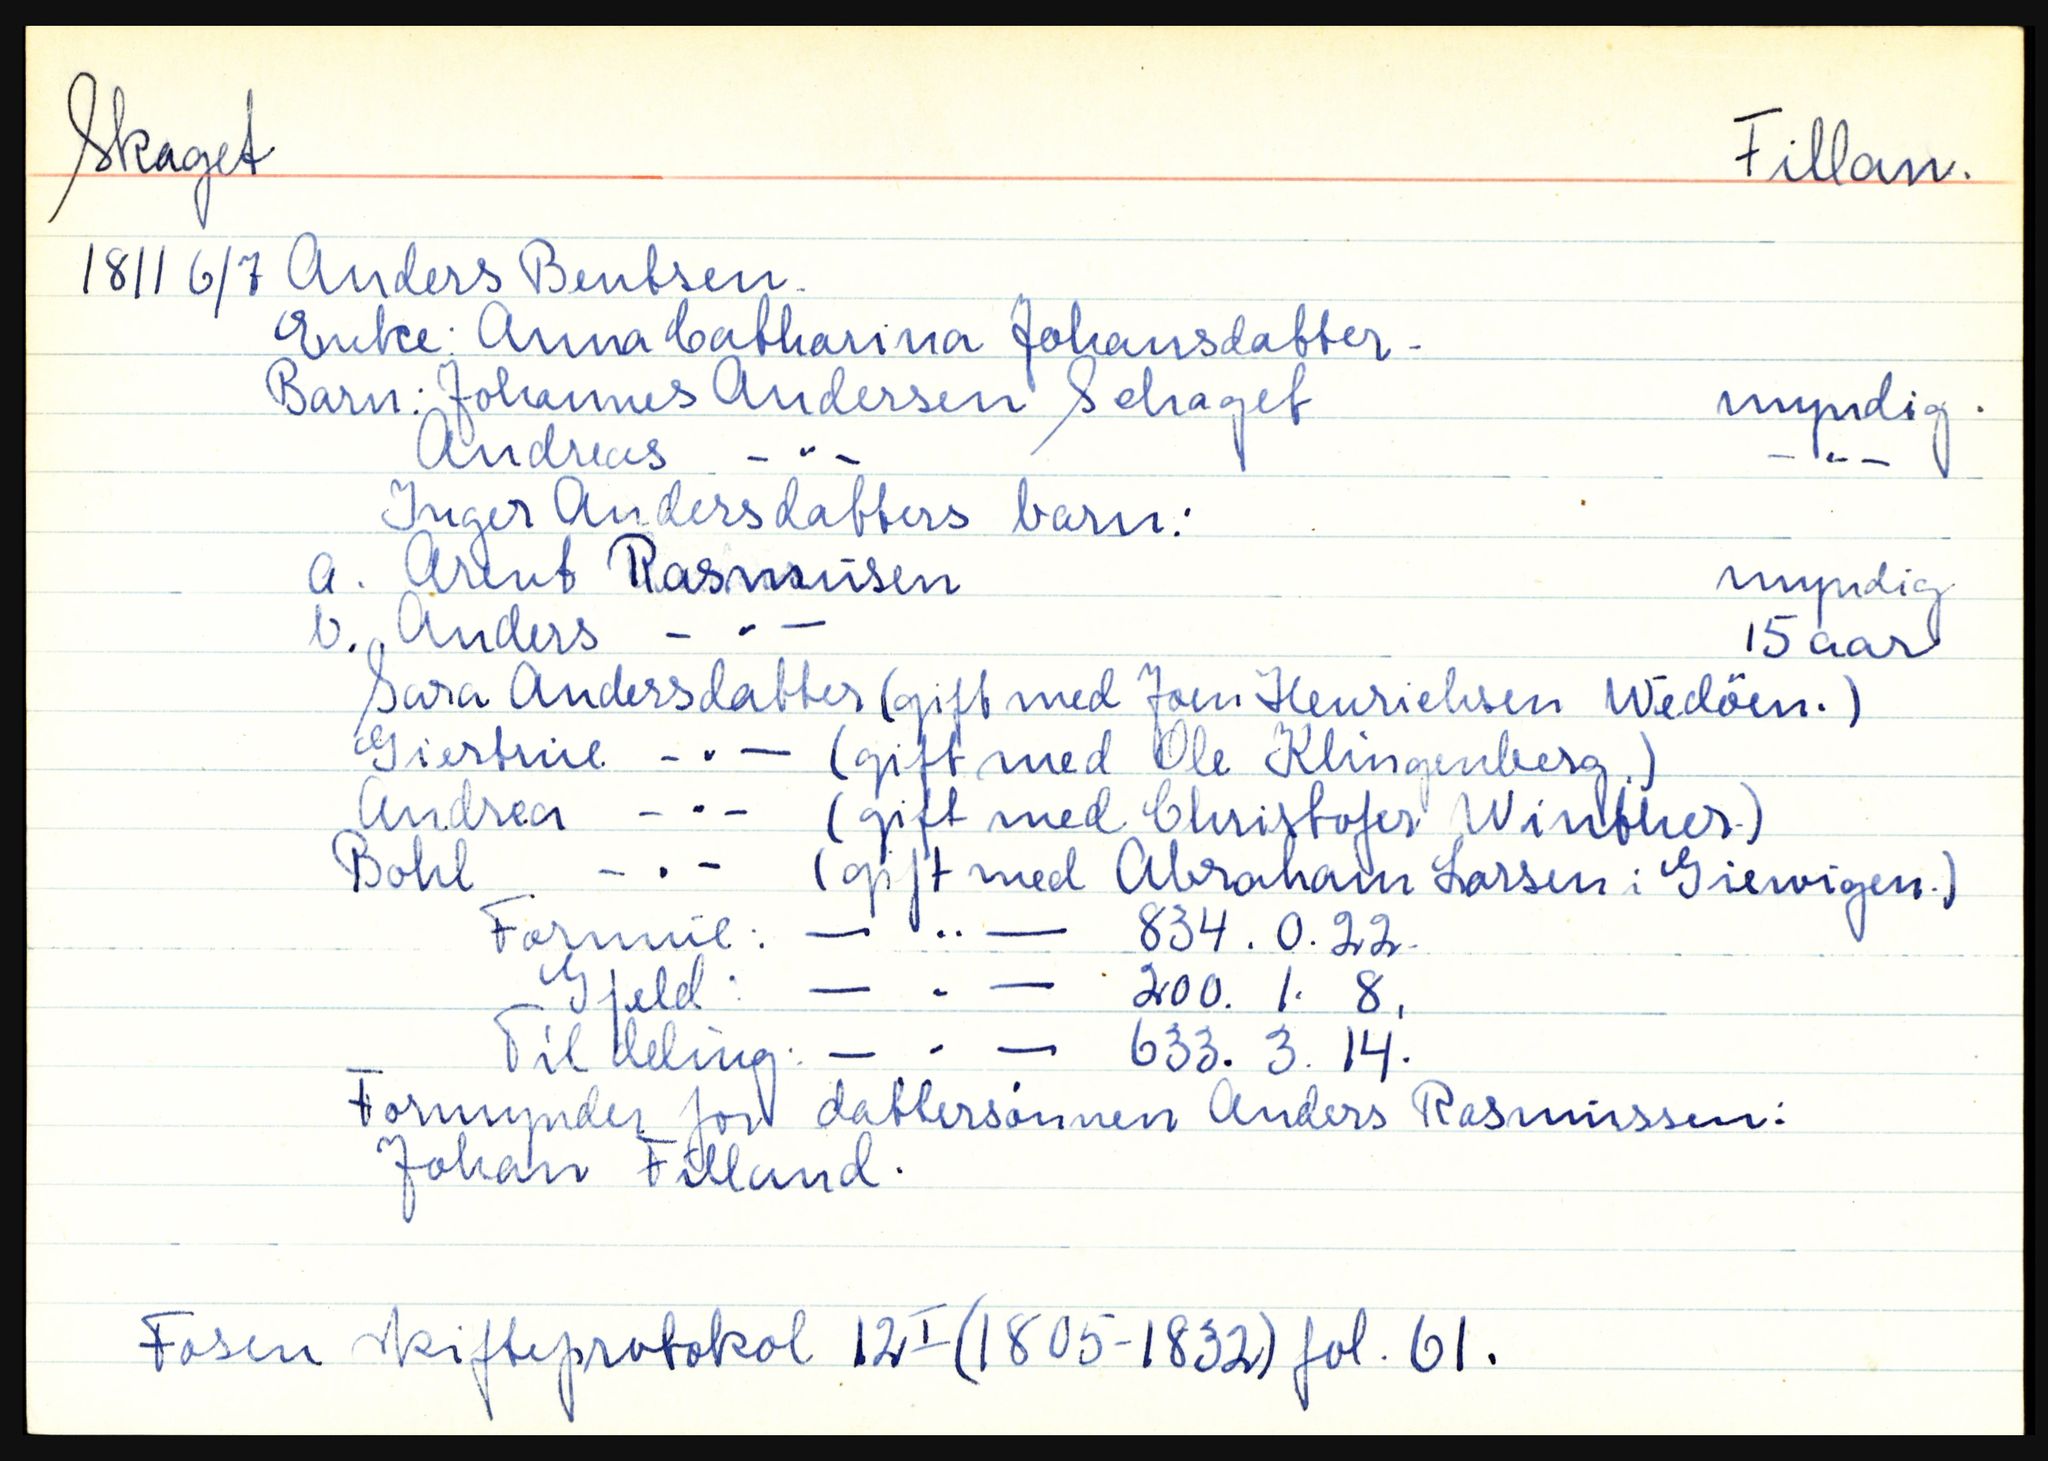 Skaget Fillan.
1811 6/7 Anders Bentsen.
Enke: Anna Catharina Johansdatter.
Barn: Johannes Andersen Schaget myndig.
Andreas - " - - " -
Inger Andersdatters barn:
a. Arent Rasmusen myndig
b. Anders - " - 15 aar
Sara Andersdatter (gift med Joen Henrichsen Wedöen.)
Giertrue - " - (gift med Ole Klingenberg.)
Andrea - " - (gift med Christofer Winther.)
Bohl - " - (gift med Abraham Larsen i Giervigen.)
Formue: — " — 834. 0. 22.
Gjeld: — " — 200. 1. 8.
Til deling: — " — 633. 3. 14.
Formynder for dattersønnen Anders Rasmussen:
Johan Filland.
Fosen skifteprotokol 12 I (1805-1832) fol. 61.